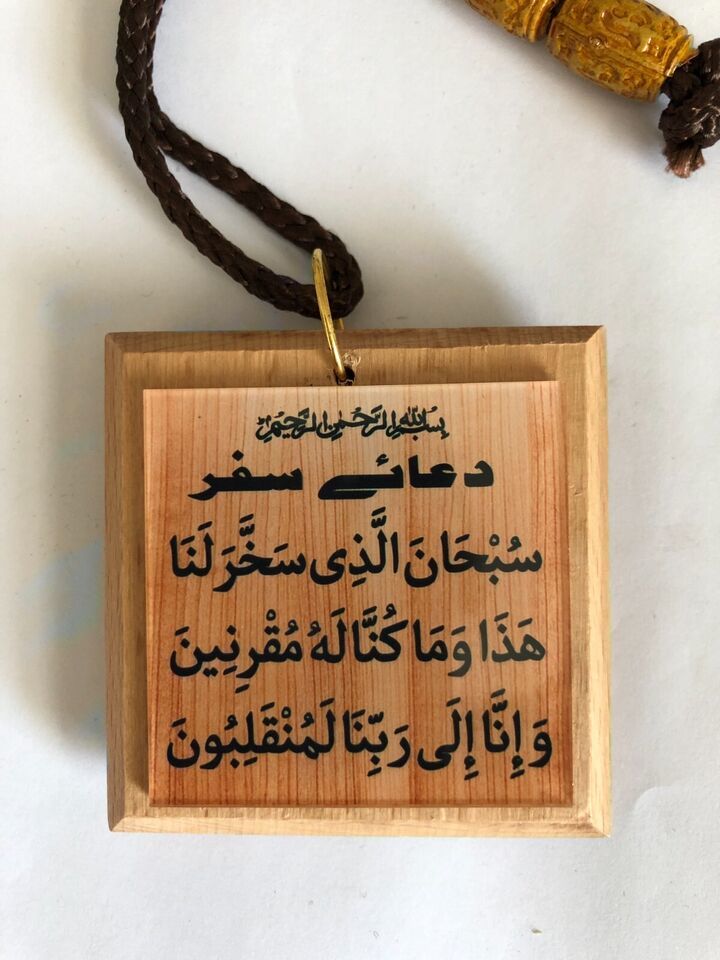 بِسْمِ اللهِ الرَّحْمٰنِ الرَّحِيْمِ
دعائے سفر
سُبْحَانَ الَّذِی سَخَّرَ لَنَا
هَذَا وَمَا كُنَّا لَهُ مُقْرِنِينَ
وَإِنَّا إِلَى رَبِّنَا لَمُنْقَلِبُونَ